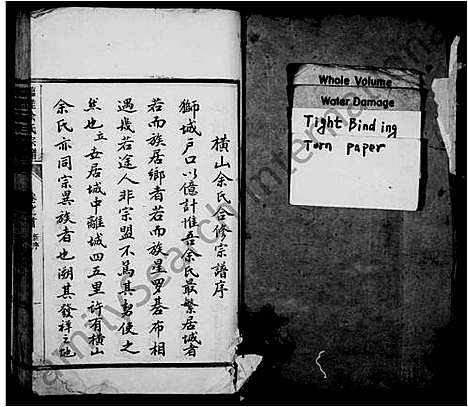 橫山余氏合修宗譜序
獅城戶口以億計惟吾余氏最繁居城者
若而族居鄉者若而族星羅碁布相
遇幾若途人非宗盟不為其勢使之
然也立世居城中離城四五里許有橫山
余氏亦同宗異族者也溯其發祥之地
Whole Volume
Water Damage
Tight Binding
Torn paper